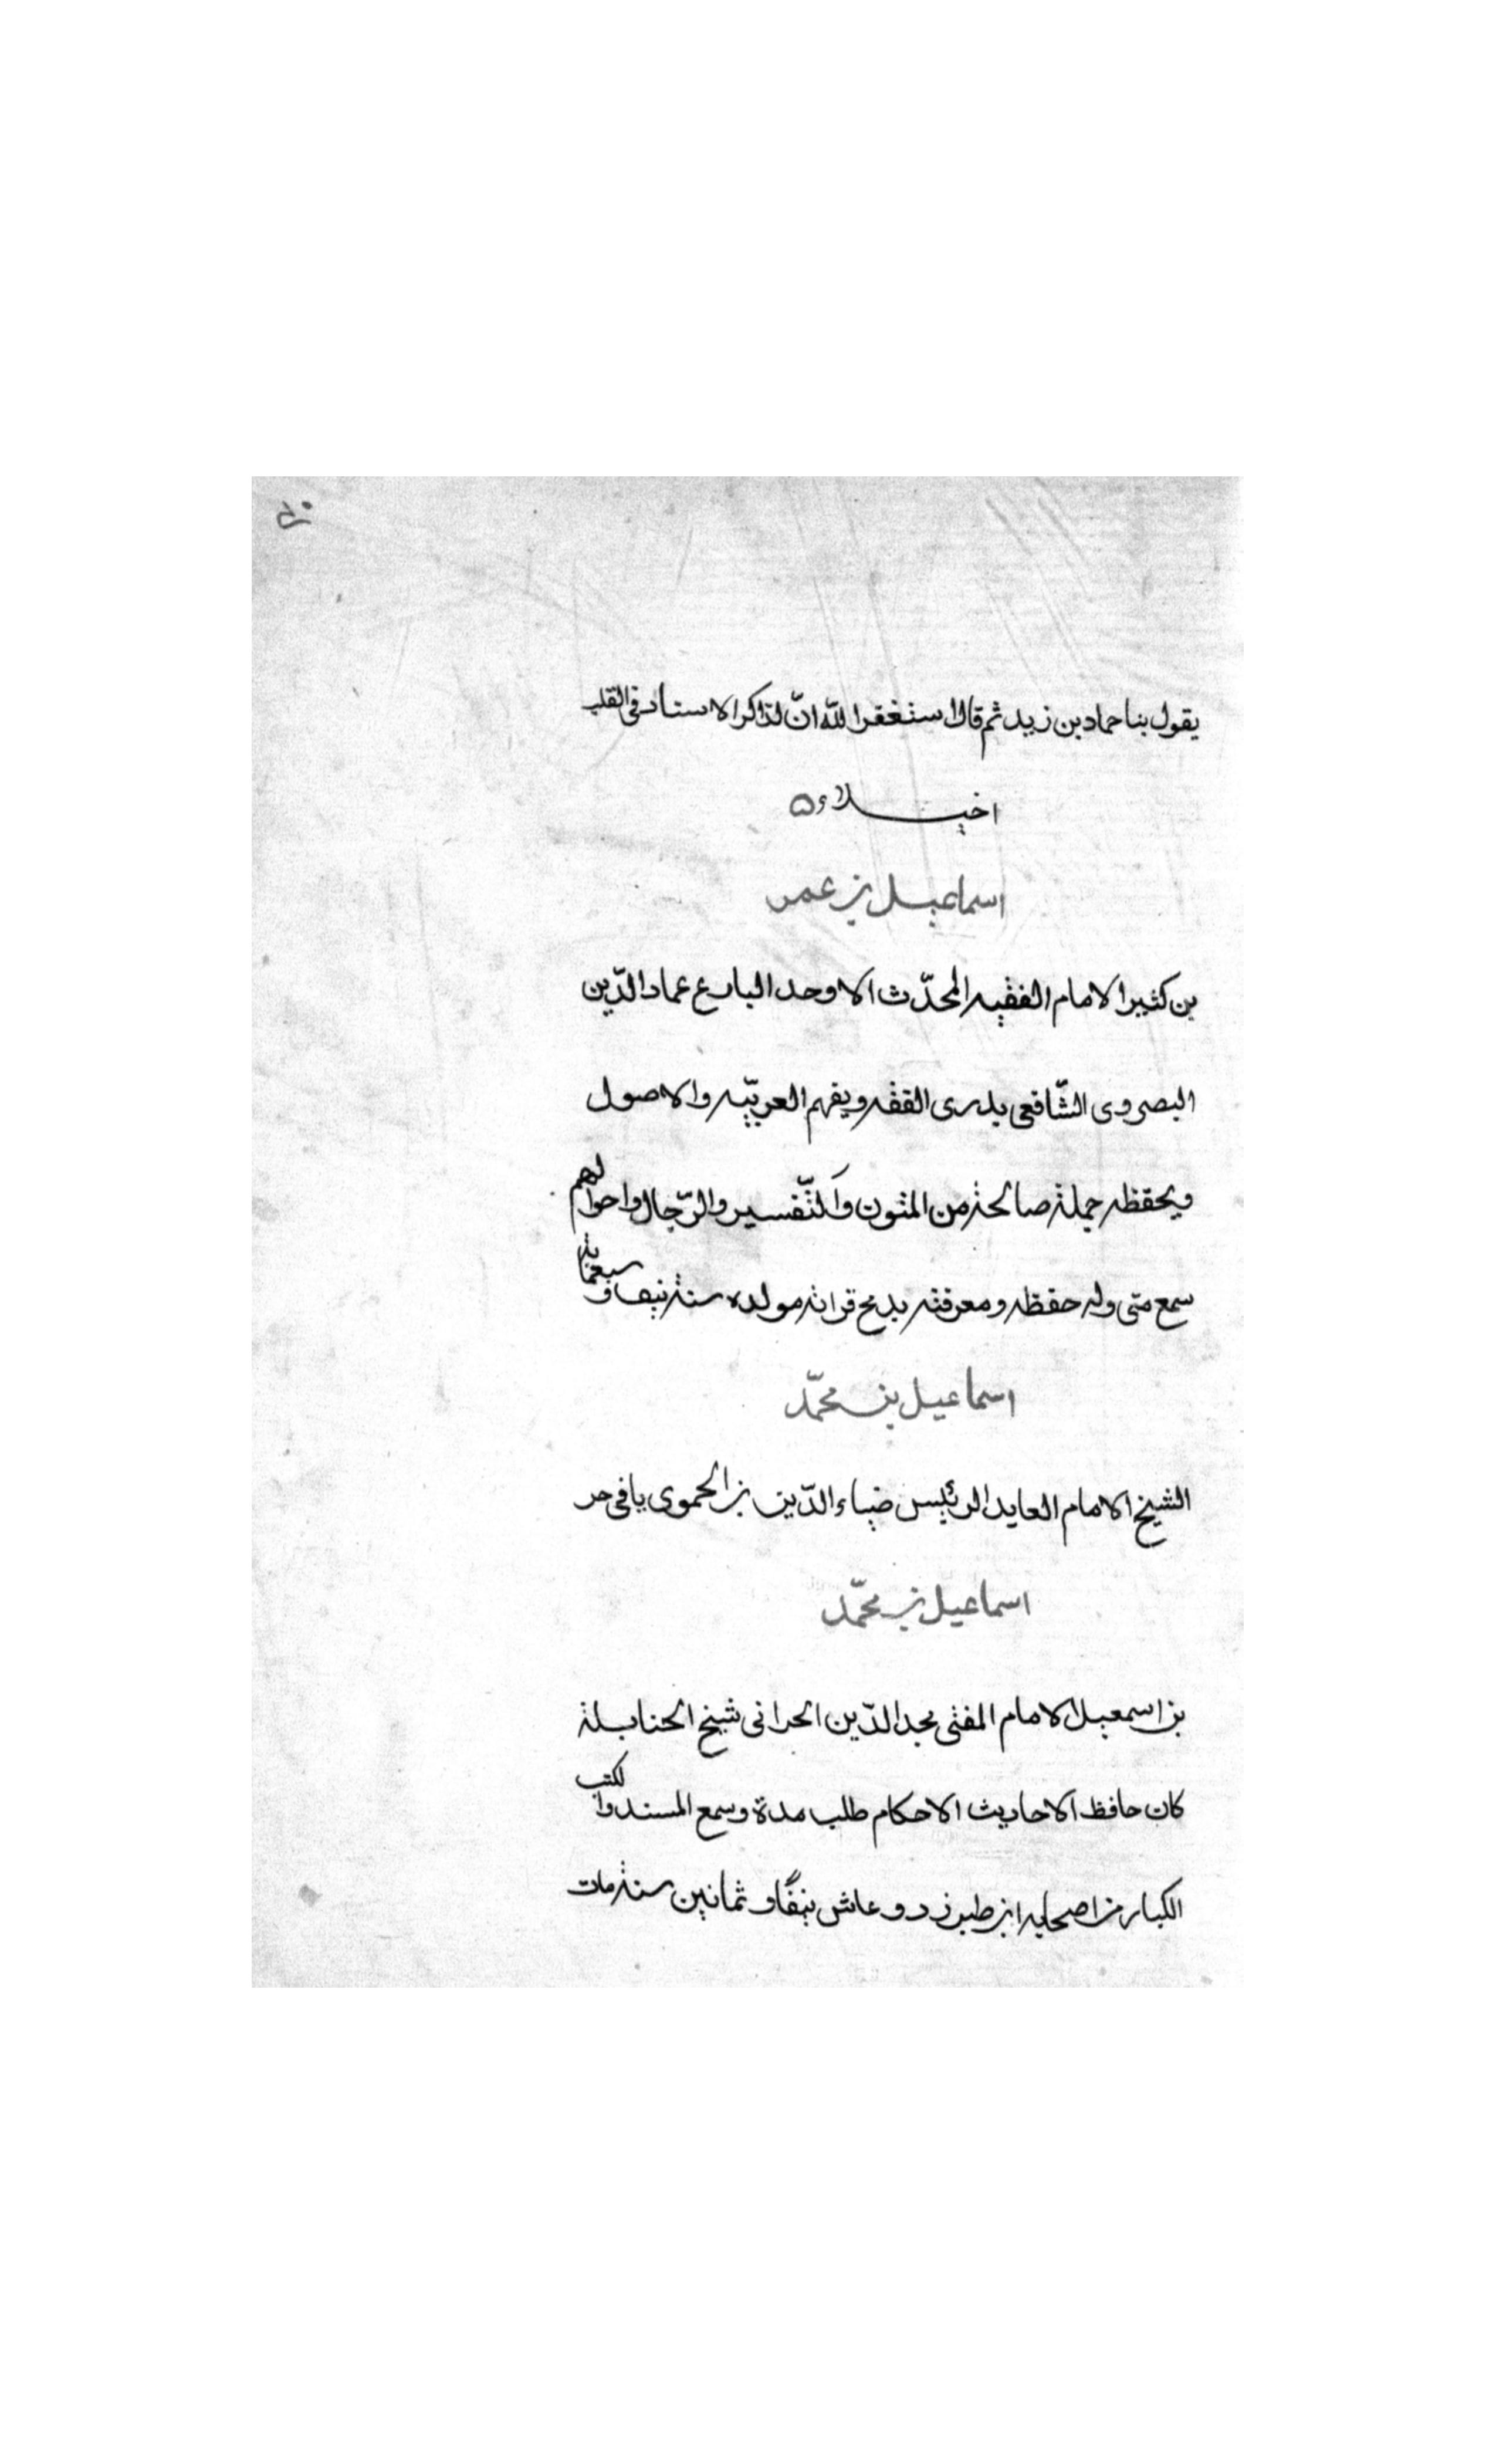 يقول بنا حماد بن زيد ثم قال استغفر الله ان لذاكر الاسناد في القلب
اخيلاء ه
اسماعيل بن عمر
بن كثير الامام الفقيه المحدّث الاوحد البارع عماد الدّين
البصروى الشّافعى يدرى الفقه ويفهم العربيّه والاصول
ويحفظ جملة صالحة من المتون والتّفسير والرّجال واحوالهم
سمع منى وله حفظ ومعرفة مولده سنة نيف وسبعمائة
اسماعيل بن محمّد
الشيخ الامام العابد الرئيس ضياء الدّين بن الحموى
اسماعيل بن محمّد
بن اسمعيل الامام المفتى مجد الدّين الحرانى شيخ الحنابلة
كان حافظ الاحاديث الاحكام طلب مدة وسمع المسند والكتب
الكبار من اصحاب ابن طبرزد وعاش نيفًا وثمانين سنة مات